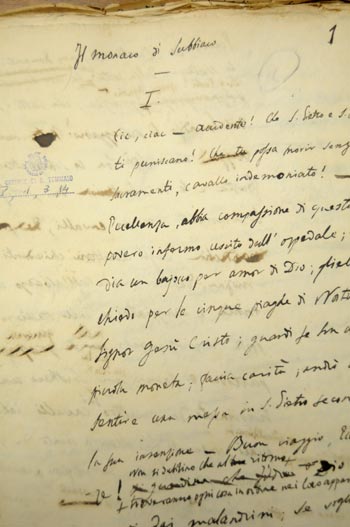 1
Il monaco di Subbiaco
I.
Cic, ciac — accidente! Che S. Pietro e S.
ti puniscano! Che tu possa morir senza
sacramenti, cavallo indemoniato! —
Eccellenza, abbia compassione di questo
povero infermo uscito dall'ospedale;
dia un bajocco, per amor di Dio; glielo
chiedo per le cinque piaghe di Nostro
Signor Gesù Cristo; guardi se ha
piccola moneta; faccia carità; andrò a
sentire una messa in S. Pietro secondo
la sua intenzione — Buon viaggio,
non si dubitino che al
troveranno ogni cosa in ordine nei
dei malandrini; se